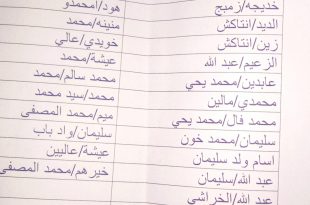 خديجه/زمبج
الديد/انتاكش
زين/انتاكش
الزعيم/عبد الله
عابدين/محمد يحي
محمدي/مالين
محمد فال/محمد يحي
سليمان/محمد خون
اسام ولد سليمان
عبد الله/سليمان
عبد الله/الخراشي
هود/امحمدو
منينه/محمد
خويدي/عالي
عيشة/محمد
محمد سالم/محمد
محمد/سيد محمد
ميم/محمد المصفى
سليمان/واد باب
عيشة/عاليين
خيرهم/محمد المصفى